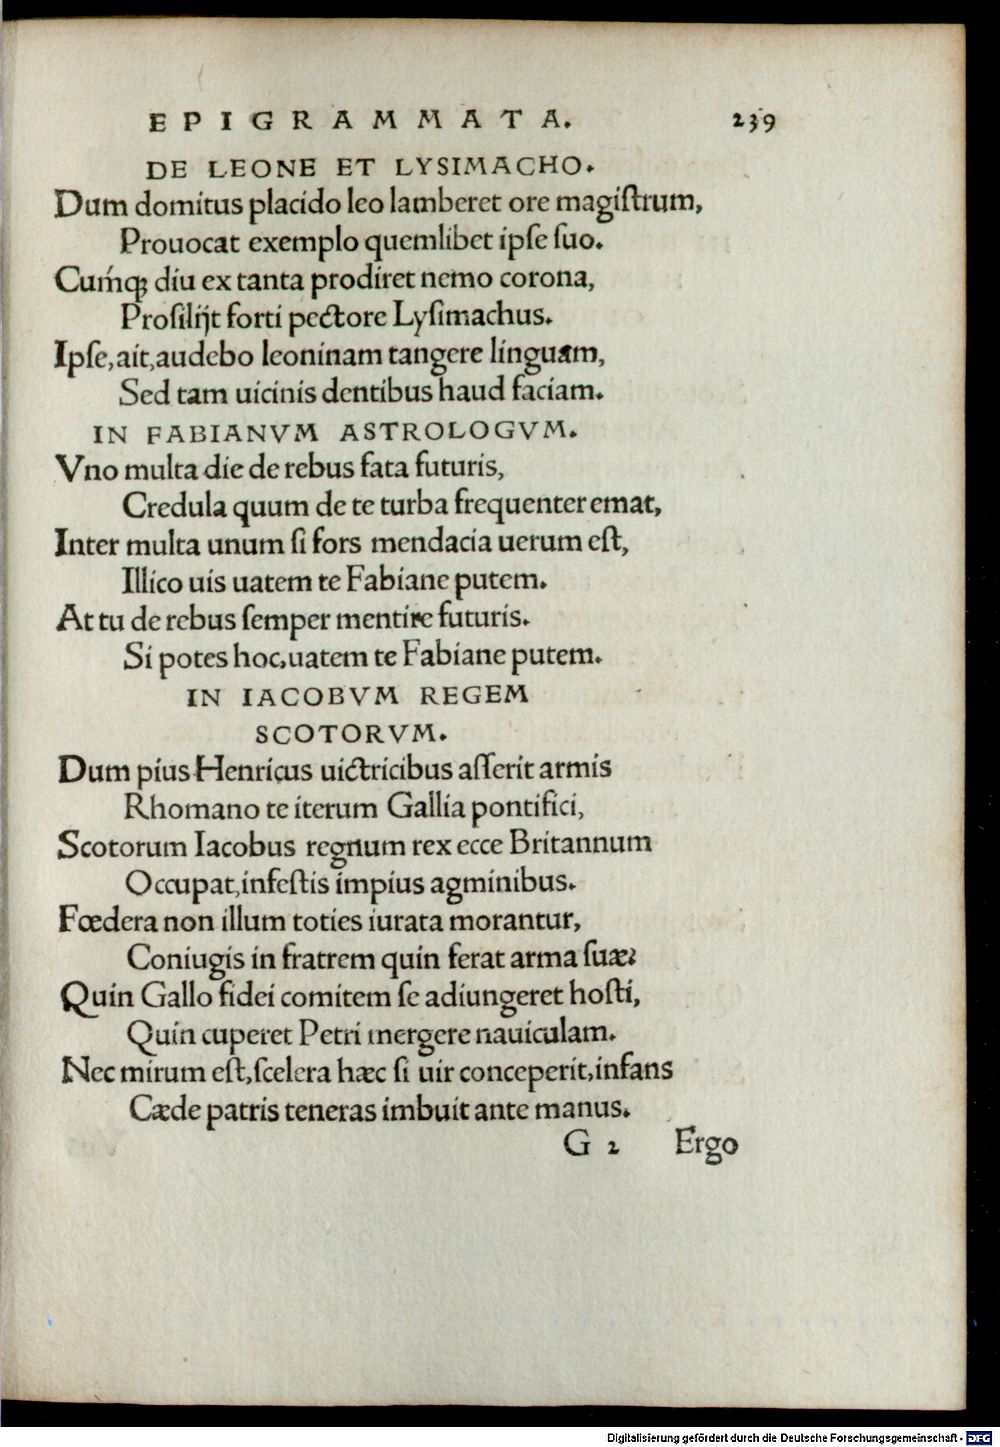 EPIGRAMMATA. 239
DE LEONE ET LYSIMACHO.
Dum domitus placido leo lamberet ore magiſtrum,
Prouocat exemplo quemlibet ipſe ſuo.
Cumq́ꝫ diu ex tanta prodiret nemo corona,
Proſilijt forti pectore Lyſimachus.
Ipſe, ait, audebo leoninam tangere linguam,
Sed tam uicinis dentibus haud faciam.
IN FABIANVM ASTROLOGVM.
Vno multa die de rebus fata futuris,
Credula quum de te turba frequenter emat,
Inter multa unum ſi fors mendacia uerum eſt,
Illico uis uatem te Fabiane putem.
At tu de rebus ſemper mentire futuris.
Si potes hoc, uatem te Fabiane putem.
IN IACOBVM REGEM
SCOTORVM.
Dum pius Henricus uictricibus aſſerit armis
Rhomano te iterum Gallia pontifici,
Scotorum Iacobus regnum rex ecce Britannum
Occupat, infeſtis impius agminibus.
Fœdera non illum toties iurata morantur,
Coniugis in fratrem quin ferat arma ſuæ?
Quin Gallo fidei comitem ſe adiungeret hoſti,
Quin cuperet Petri mergere nauiculam.
Nec mirum eſt, ſcelera hæc ſi uir conceperit, infans
Cæde patris teneras imbuit ante manus.
G 2 Ergo
Digitalisierung gefördert durch die Deutsche Forschungsgemeinschaft - DFG